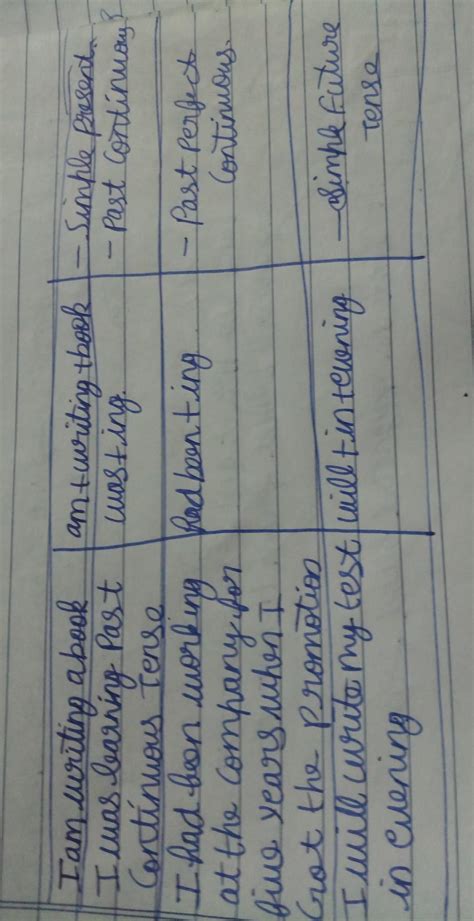 I am writing a book | am+writing+book | - Simple Present.
I was learning Past | was+ing. | - Past Continuous
Continuous Tense
I had been working | had been+ing | - Past Perfect
at the company for | Continuous.
five years when I
Got the promotion
I will write my test | will+in+evening | - Simple Future
in evening | Tense